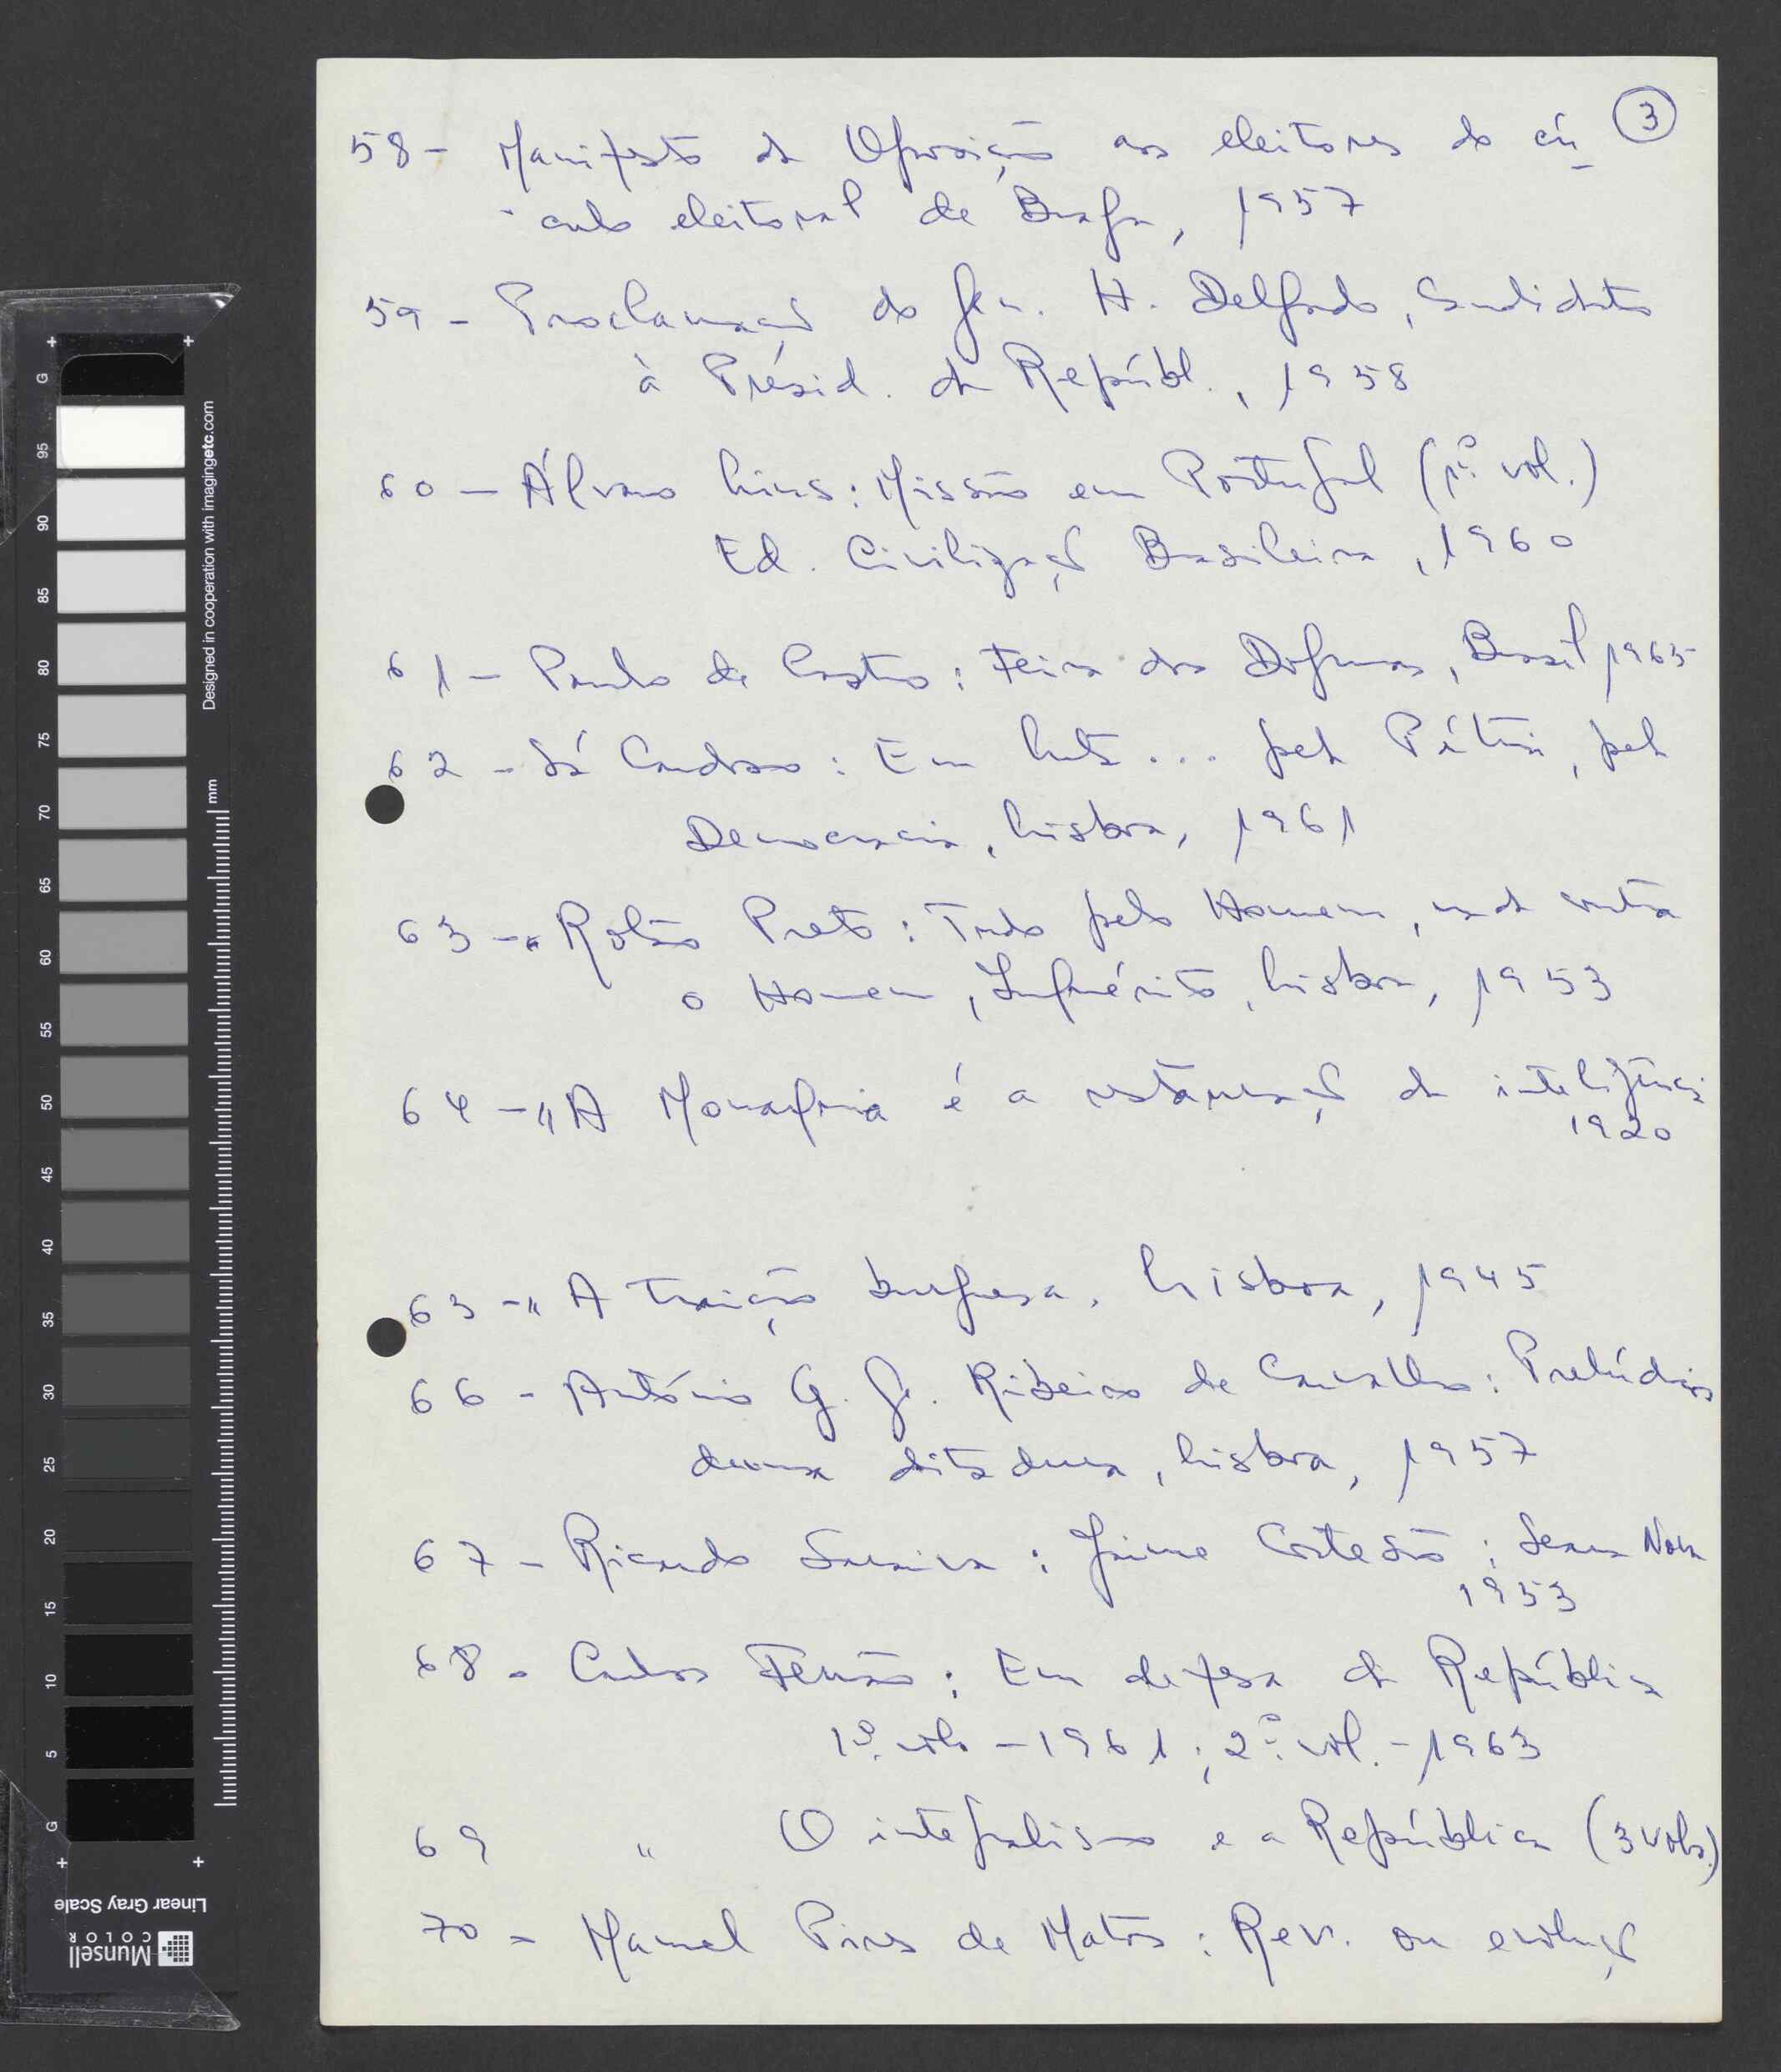 3
58 - Manifesto da Oposição aos eleitores do cír
culo eleitoral de Braga, 1957
59 - Proclamação do Gen. H. Delgado, Candidato
à Présid. da Républ., 1958
60 - Álvaro Lins: Missão em Portugal (1º vol.)
Ed. Civilização Brasileira, 1960
61 - Paulo de Castro: Feira dos Dogmas, Brasil 1965
62 - Sá Cardoso: Em luta... pela Pátria, pela
Democracia, Lisboa, 1961
63 - " Rolão Preto: Tudo pelo Homem, nada contra
o Homem, Inquérito, Lisboa, 1953
64 - " A Monarquia é a restauração da inteligência
1920
65 - " A Traição burguesa. Lisboa, 1945
66 - António G. G. Ribeiro de Carvalho: Prelúdios
duma ditadura, Lisboa, 1957
67 - Ricardo Saraiva: Jaime Cortesão; Seara Nova
1953
68 - Carlos Ferrão: Em defesa da República
1º. vol. - 1961; 2º. vol. - 1963
69 " O integralismo e a República (3 vols.)
70 - Manuel Pires de Matos: Rev. ou evolução
G 95 90 85 80 75 70 65 60 55 50 45 40 35 30 25 20 15 10 5 G
Designed in cooperation with imagingetc.com
mm
Linear Gray Scale
Munsell
COLOR